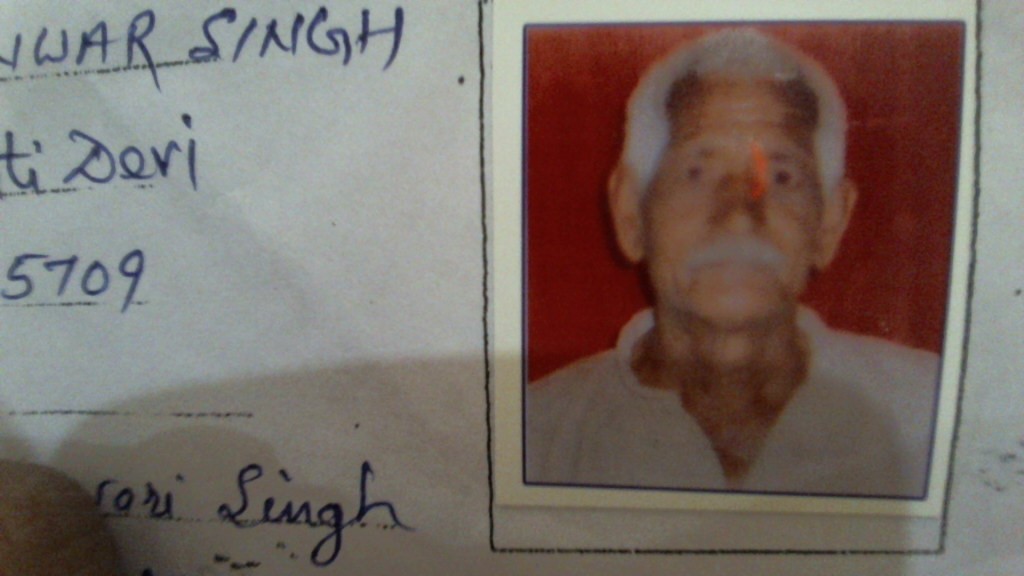 NWAR SINGH
ti Devi
5709
rari Singh